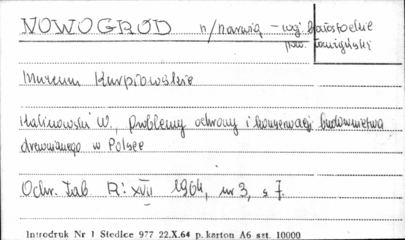 NOWOGRÓD n/Narwią - woj. białostockie
pow. łomżyński
Muzeum Kurpiowskie
Kalinowski W., Problemy ochrony i konserwacji budownictwa
drewnianego w Polsce
Ochr. Zab R: XVII 1964, nr 3, s 7.
Introdruk Nr 1 Siedlce 977 22.X.64 p. karton A6 szt. 10000